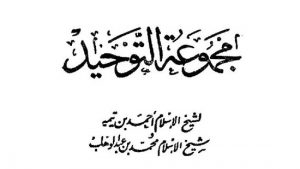 مجموعة التوحيد
لشيخ الإسلام أحمد بن تيميه
و
شيخ الإسلام محمد بن عبد الوهاب